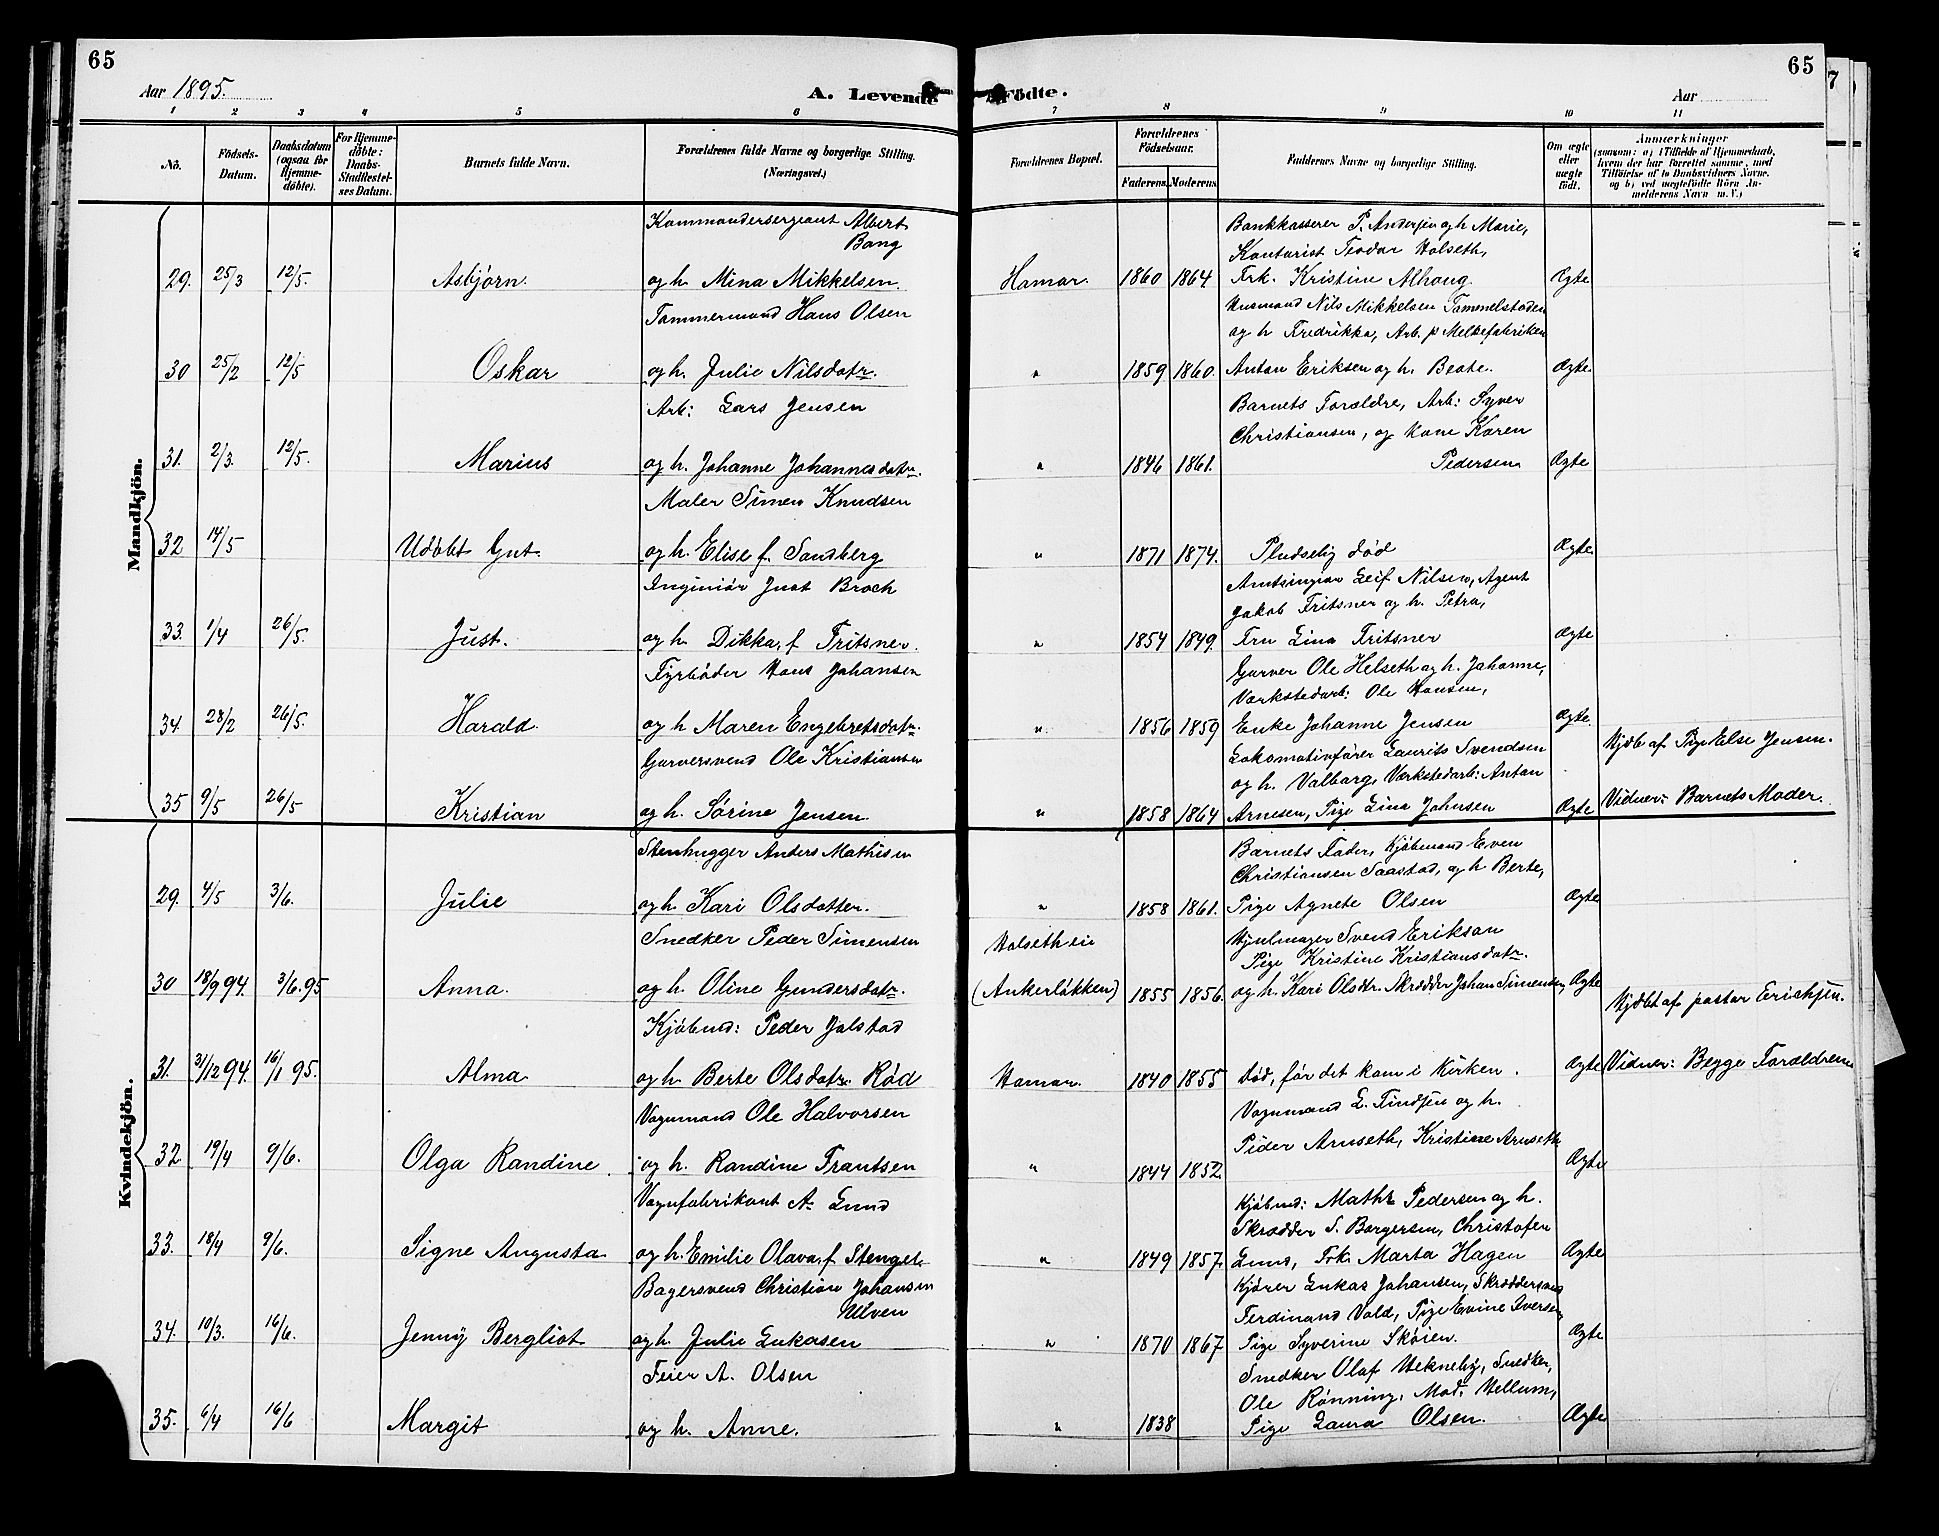 65
65
Aar 1895.
A. Levende Fødte.
Aar
1 2 3 4 5 6 7 8 9 10 11
No.
Födsels-Datum.
Daabsdatum (ogsaa for Hjemme-döbte).
For Hjemme-döbte: Daabs-Stadfæstel-ses Datum.
Barnets fulde Navn.
Forældrenes fulde Navne og borgerlige Stilling. (Næringsvei.)
Forældrenes Bopæl.
Forældrenes Födselsaar.
Faderens. Moderens.
Faddernes Navne og borgerlige Stilling.
Om ægte eller uægte födt.
Anmærkninger
(saasom: a) i Tilfælde af Hjemmedaab, hvem der har forrettet samme, med Tilföielse af to Daabsvidners Navne, og b) ved uægtefödte Börn An-melderens Navn m. V.)
Mandkjön.
Kommandersergeant Albert Bang
Bankkasserer P. Andersen og h Marie,
Kontorist Teodor Holseth,
29. 25/3 12/5. Asbjørn. og h. Mina Mikkelsen. Hamar. 1860 1864 Frk. Kristine Alhaug. Ægte
Tømmermand Hans Olsen
Husmand Nils Mikkelsen Tommelstaden
og h Fredrikka, Arb. p Melkefabriken
30 25/2 12/5 Oskar og h. Julie Nilsdatr. " 1859 1860. Anton Eriksen og h. Beate. Ægte
Arb: Lars Jensen
Barnets Forældre, Arb: Syver
Christiansen, og Kone Karen
31. 2/3. 12/5. Marius og h. Johanne Johannesdatr. " 1846 1861. Pedersen Ægte
Maler Simen Knudsen
32 14/5 Udøbt Gut. og h. Elise f. Sandberg " 1871 1874. Pludselig død Ægte
Ingeniør Just Broch
Amtsingiør Leif Nilsen, Agent
Jakob Fritsner og h. Petra,
33. 1/4 26/5. Just. og h. Dikka, f Fritsner. " 1854 1849. Fru Lina Fritsner Ægte
Fyrbøder Hans Johansen
Garver Ole Helseth og h. Johanne,
Værkstedarb: Ole Hansen,
34. 28/2 26/5. Harald. og h Maren Engebretsdatr. " 1856 1859 Enke Johanne Jensen Ægte.
Garversvend Ole Kristiansen
Lokomotivfører Laurits Svendsen
og h. Valborg, Værkstedarb: Anton
Hjdb af Pige Else Jensen.
35 9/5 26/5 Kristian og h. Sørine Jensen. " 1858 1864 Arnesen, Pige Lina Johnsen Ægte Vidner: Barnets Moder.
Kvindekjön.
Stenhugger Anders Mathisen
Barnets Fader, Kjøbmand Even
Christiansen Saastad, og h Berte,
29. 4/5 3/6. Julie og h. Kari Olsdatter. " 1858 1861. Pige Agnete Olsen Ægte
Snedker Peder Simensen
Holsetheie
Hjulmager Svend Erikson
Pige Kristine Kristiansdatr.
30 18/9 94. 3/6.95 Anna. og h. Oline Gundersdatr. (Ankerløkken) 1855 1856. og h. Kari Olsdr. Skrædder Johan Simensen, Ægte
Kjøbmd: Peder Jolstad
Hjdbt af pastor Erichsen.
31. 31/12 94. 16/1 95. Alma og h. Berte Olsdatr. Rød Hamar. 1840 1855 Død, før det kom i Kirken. Ægte Vidner: Begge Forældrene
Vognmand Ole Halvorsen
Vognmand L. Findsen og h.
Peder Arnseth, Kristine Arnseth
32 19/4 9/6. Olga Randine. og h. Randine Frantsen " 1844 1852. Ægte
Vognfabrikant A. Lund
Kjøbmd: Maths Pedersen og h.
Skrædder S. Borgersen, Christofer
33. 18/4 9/6. Signe Augusta og h. Emilie Olava, f Stenget. " 1849 1857. Lund, Frk. Marta Hagen Ægte
Bagersvend Christian Johansen Ulven
Kjører Lukas Johansen, Skræddersvend
Ferdinand Vold, Pige Evine Iversen,
34. 10/3. 16/6. Jenny Bergliot og h. Julie Lukasen " 1870 1867 Pige Syverine Skøien. Ægte
Feier A. Olsen
Snedker Olaf Vekneby, Snedker,
Ole Rønning, Mad. Hellum,
35. 6/4 16/6 Margit og h. Anne. " 1838 Pige Laura Olsen. Ægte